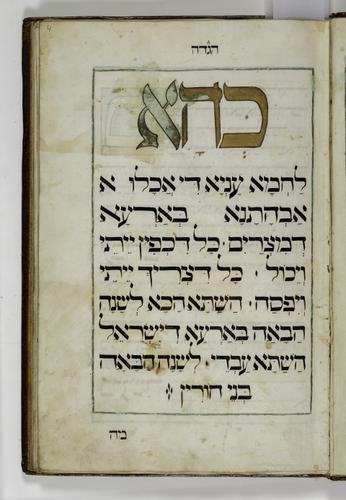 הגדה
כהא
לַחְמָא עַנְיָא דִי אֲכַלוּ א
אַבְהָתַנָא בְּאַרְעָא
דְמִצְרַיִם · כָּל דִכְפִין יֵיתֵי
וְיֵכוֹל · כָּל דִצְרִיךְ יֵיתֵי
וְיִפְסַח · הָשַׁתָּא הָכָא לְשָׁנָה
הַבָּאָה בְּאַרְעָא דְיִשְׂרָאֵל
הָשַׁתָּא עַבְדֵי · לְשָׁנָה הַבָּאָה
בְּנֵי חוֹרִין
מה